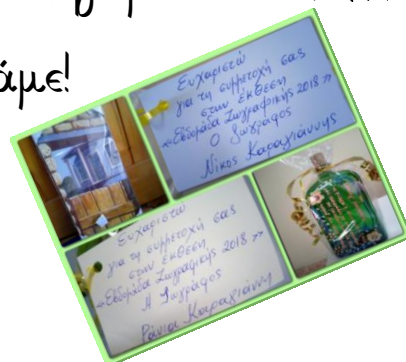 άμε!
Ευχαριστώ
για τη συμμετοχή σας
στην έκθεση
«Εβδομάδα Ζωγραφικής 2018»
Ο ζωγράφος
Νίκος Καραγιάννης
Ευχαριστώ
για τη συμμετοχή σας
στην έκθεση
«Εβδομάδα Ζωγραφικής 2018»
Η ζωγράφος
Ράνια Καραγιάννη